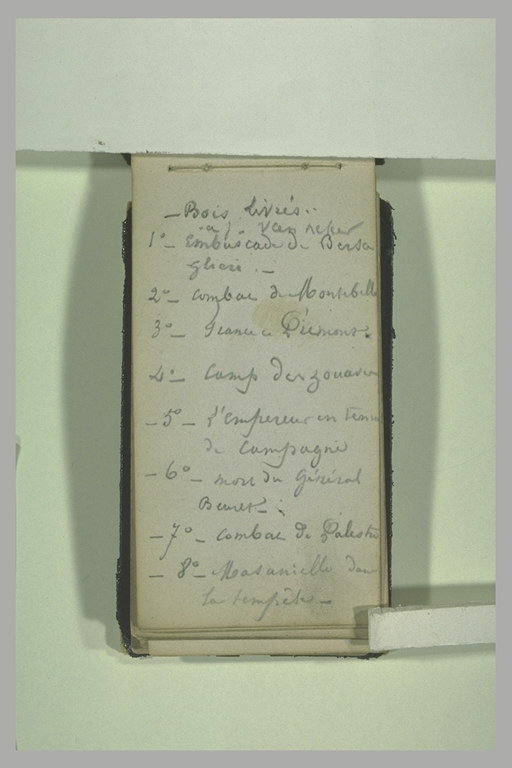 - Bois livrés..
à J. Van
1°- Embuscade de Bersa
glieri. -
2°- combat de Montebell
3°- Piémont.
4°- Camp des zouaves
- 5°- L'Empereur en tenu
de campagne
- 6°- mort du Général
Beuret -.
- 7°- combat de Palestr
- 8°- Masaniello dan
la tempête -